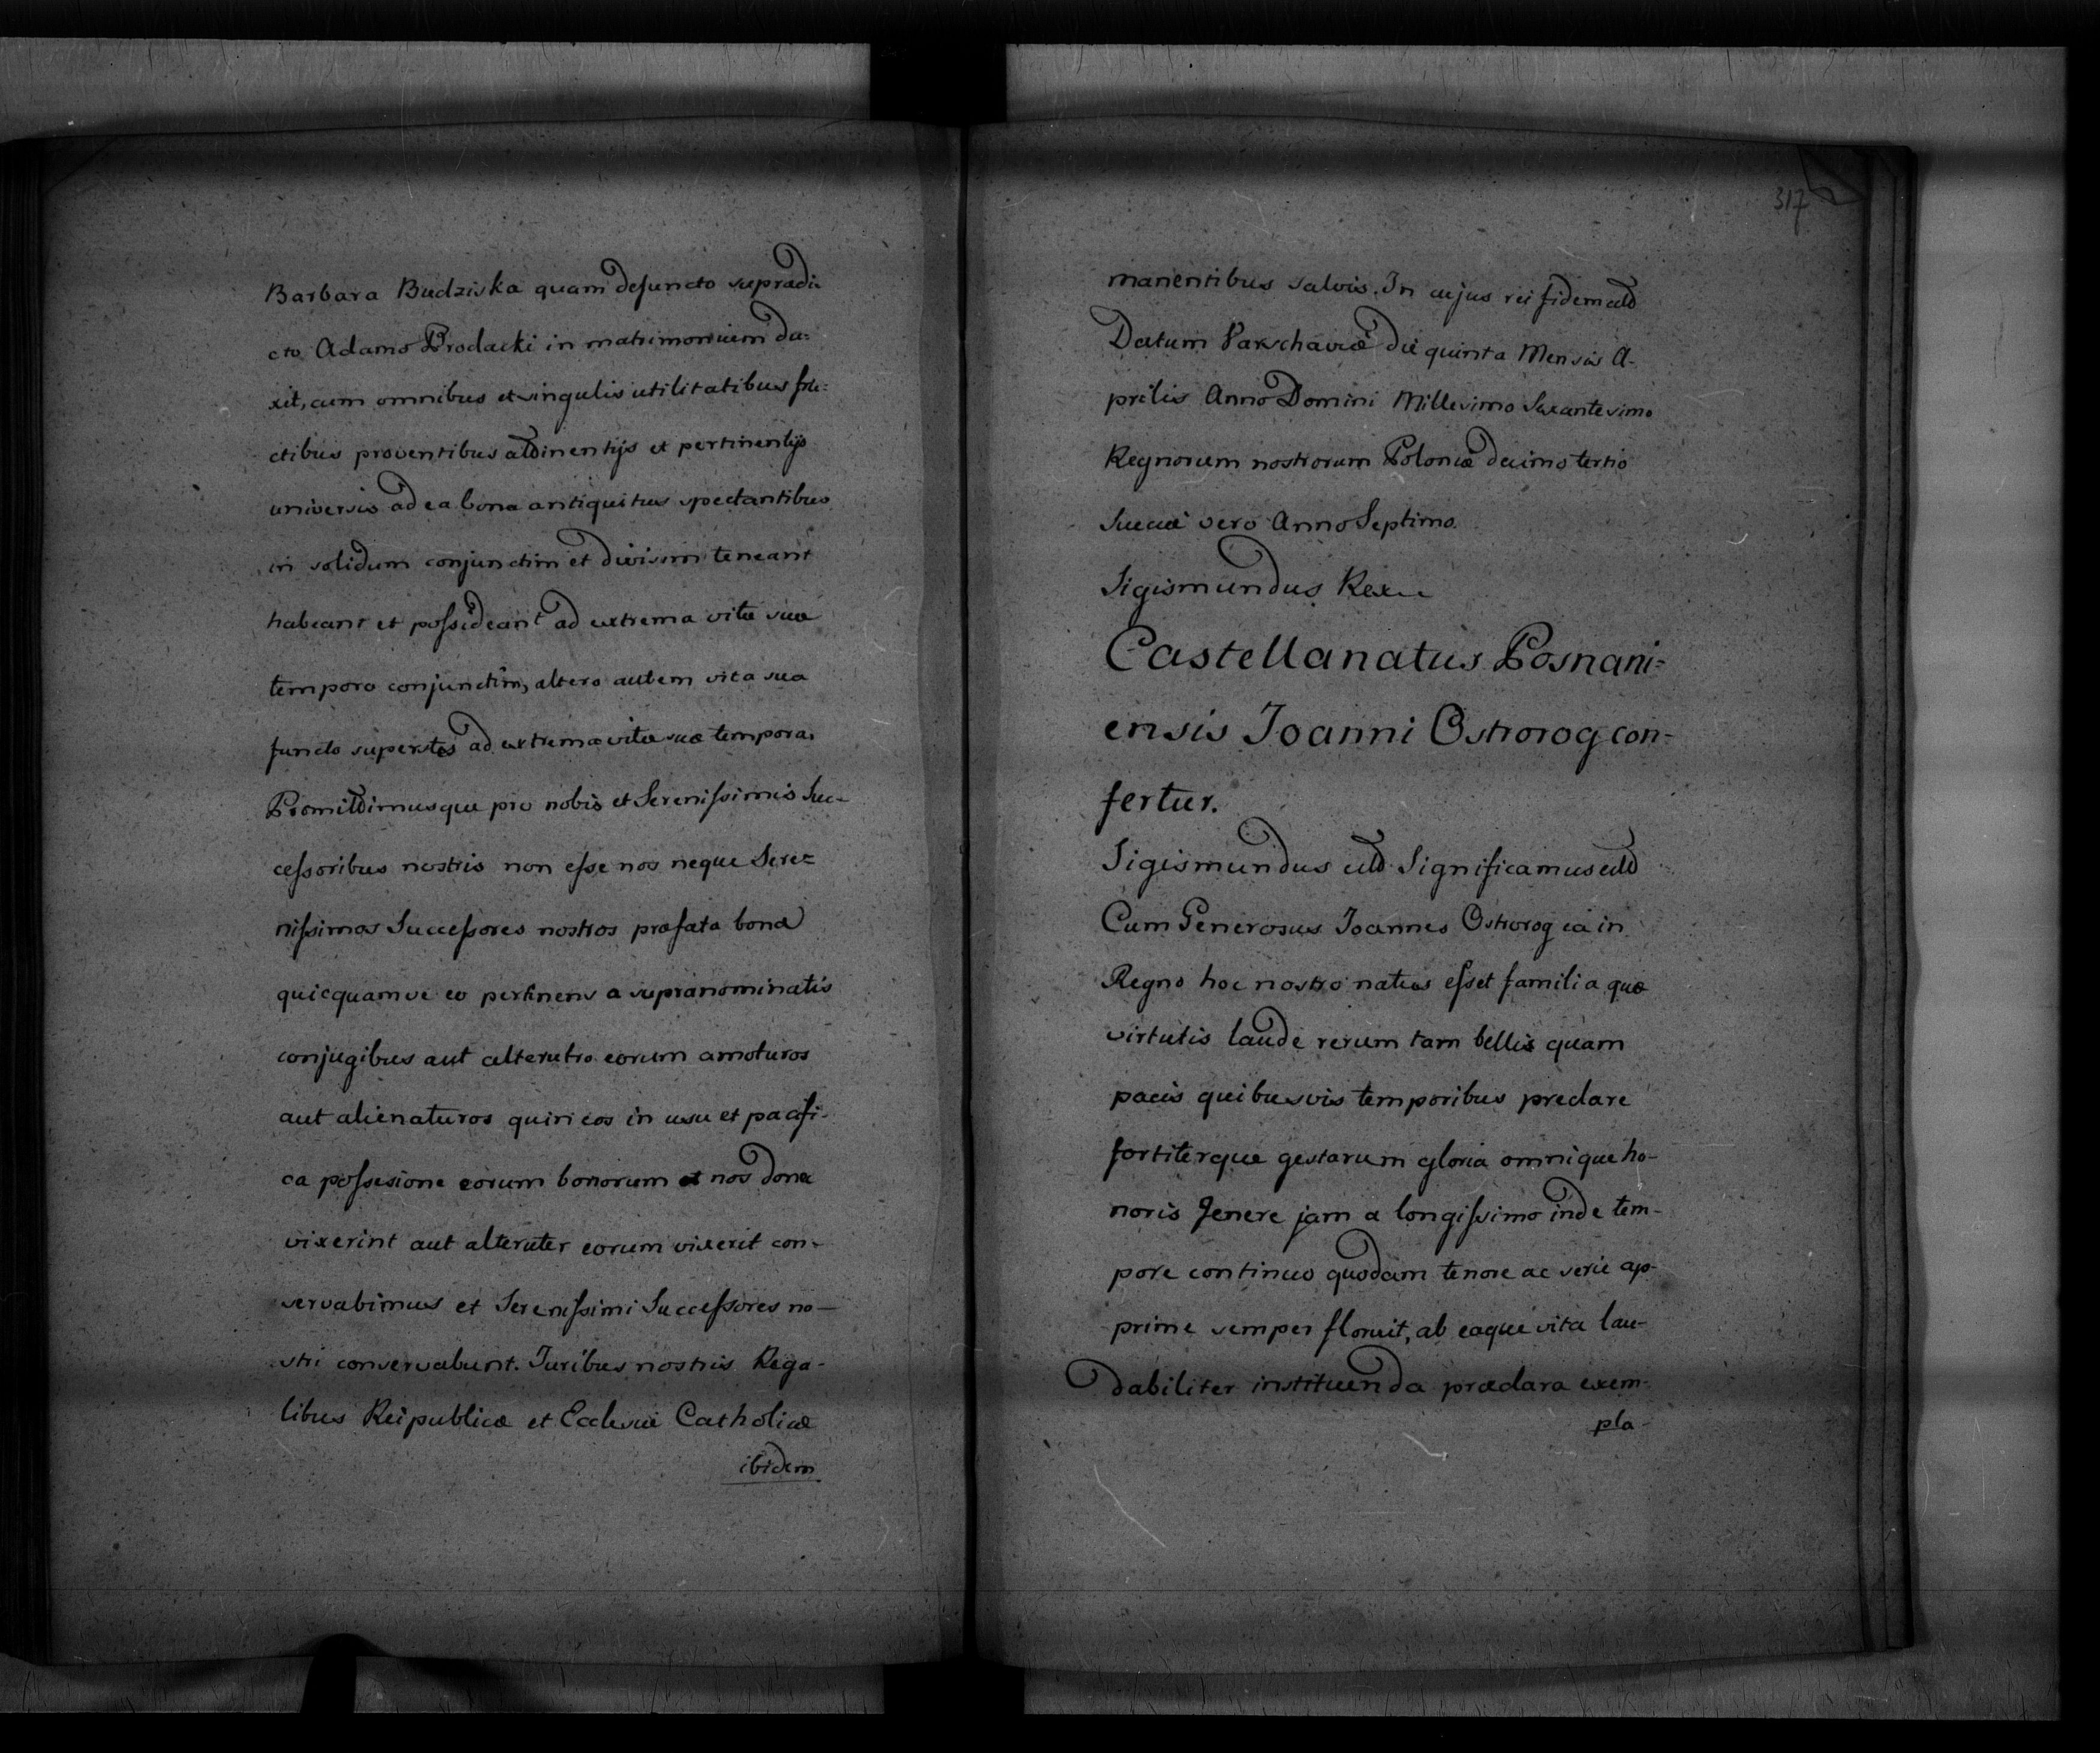 Barbara Budziska quam defuncto supradi=
cto Adamo Brodacki in matrimonium da=
xit, cum omnibus et singulis utilitatibus fru=
ctibus proventibus attinentijs et pertinentijs
universis ad ea bona antiquitus spectantibus
in solidum conjunctim et divisim teneant
habeant et possideant ad extrema vitæ suæ
tempora conjunctim, altero autem vita sua
functo superstes ad extrema vitæ suæ tempora.
Promittimusque pro nobis et Serenissimis Suc=
cessoribus nostris non esse nos neque Sere=
nissimos Successores nostros præfata bona
quicquamve eo pertinens a supranominatis
conjugibus aut alterutro eorum amoturos
aut alienaturos quin eos in usu et pacifi-
ca possesione eorum bonorum et nos donec
vixerint aut alteruter eorum vixerit con-
servabimus et Serenissimi Successores no-
stri conservabunt. Juribus nostris Rega-
libus Reipublicæ et Ecclesiæ Catholicæ
ibidem
317
manentibus salvis. In cujus rei fidem ett
Datum Varschaviæ die quinta Mensis A-
prilis Anno Domini Millesimo Sexantesimo
Regnorum nostrorum Poloniæ decimo tertio
Sueciæ vero Anno Septimo.
Sigismundus Rex
Castellanatus Posnani=
ensis Joanni Ostrorog con-
fertur.
Sigismundus ett Significamus ett
Cum Generosus Joannes Ostrorog ea in
Regno hoc nostro natus esset familia quæ
virtutis laude rerum tam bellis quam
pacis quibusvis temporibus preclare
fortiterque gestarum gloria omnique ho-
noris genere jam a longissimo inde tem-
pore continuo quodam tenore ac serie ap-
prime semper floruit, ab eaque vita lau-
dabiliter instituenda præclara exem-
pla-